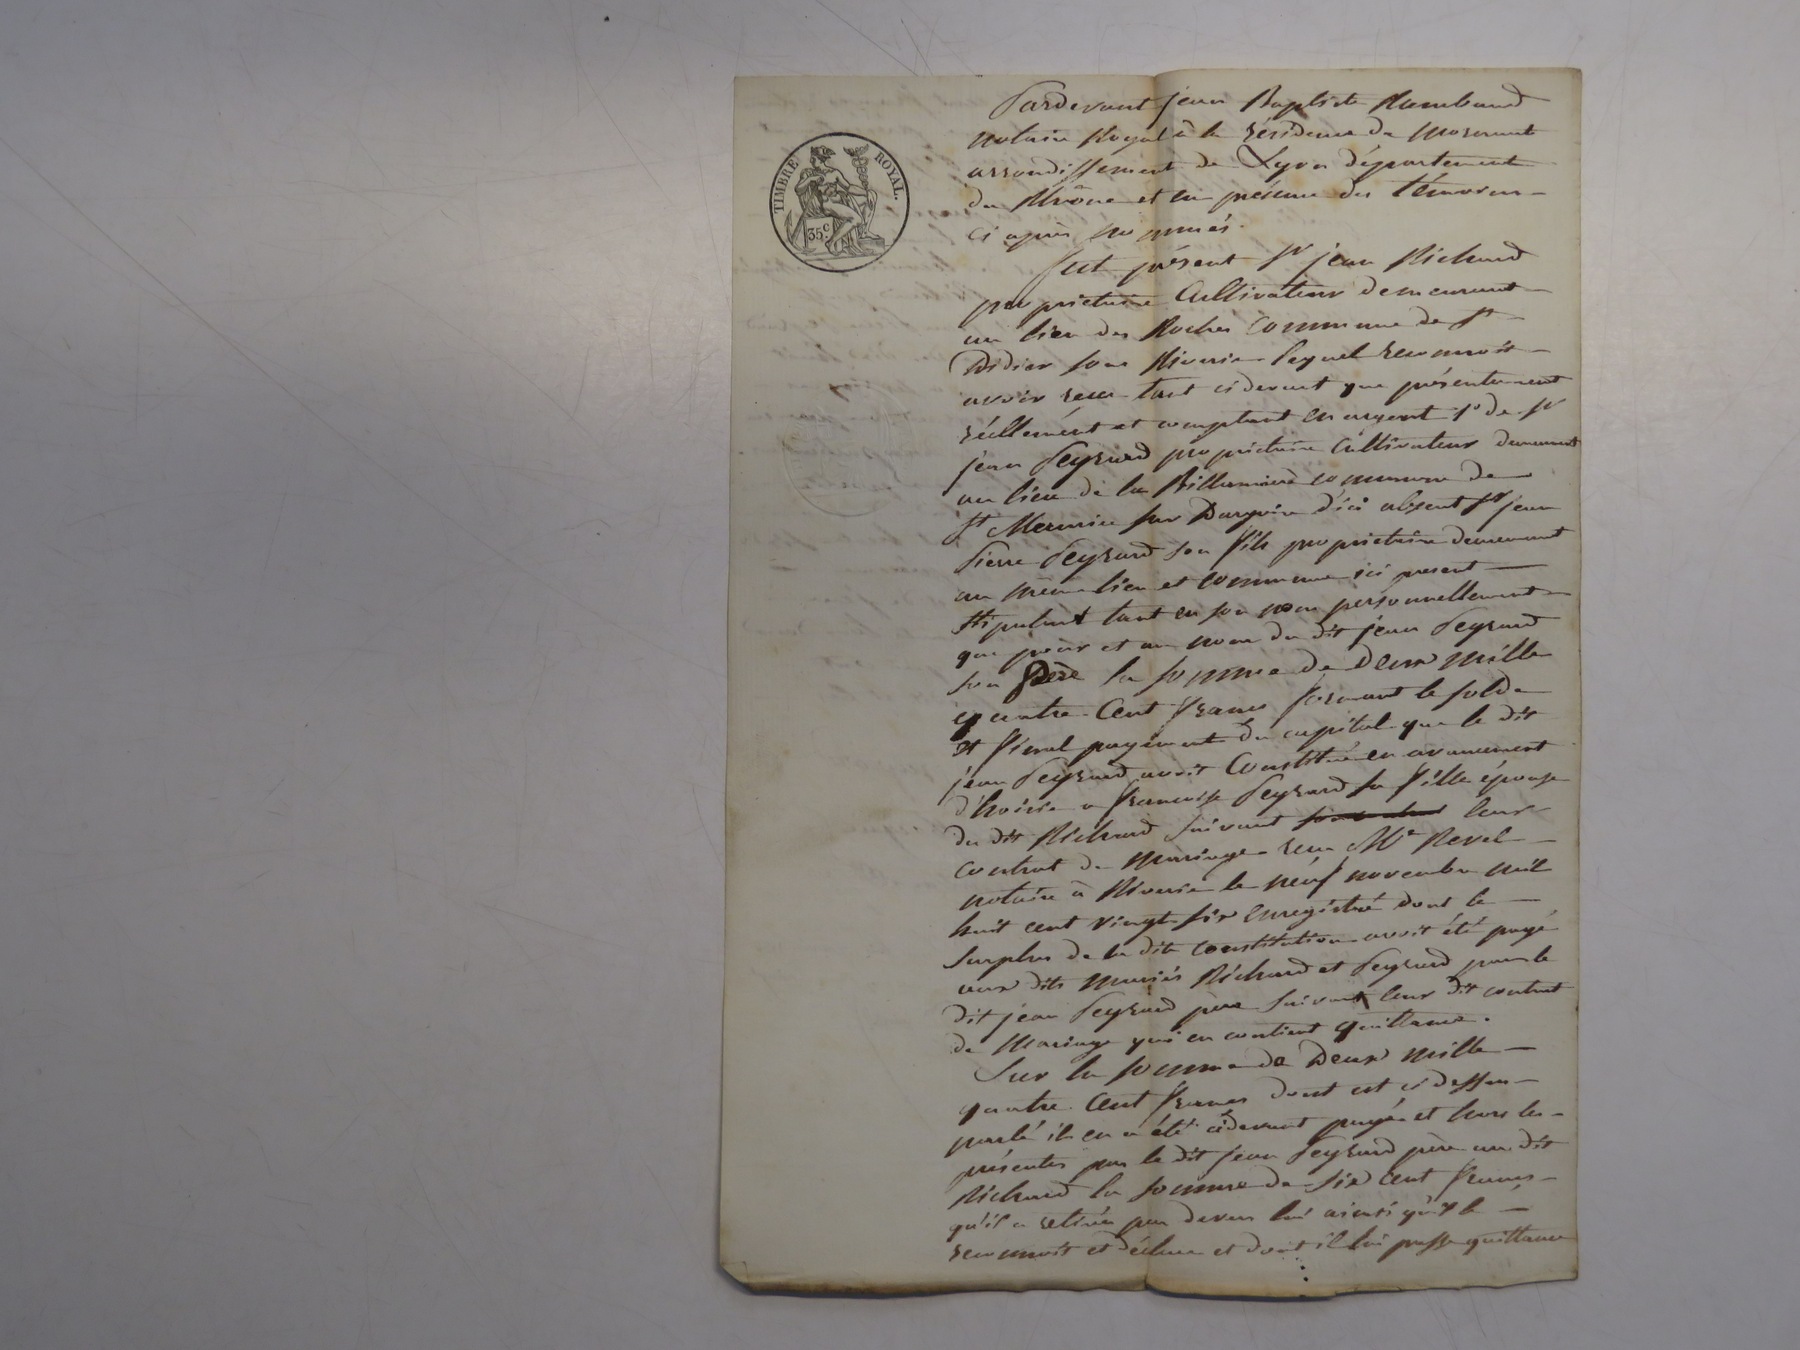 TIMBRE ROYAL.
35c.
Pardevant jean Baptiste Rambaud
notaire Royal à la résidence de mornant
arrondissement de Lyon département
du Rhône et en présence des témoins
ci après nommés.
fut présent Sr jean Richard
propriétaire Cultivateur demeurant
au lieu des Roches commune de St
Didier sous Riverie lequel reconnoit
avoir recu tant cidevant que présentement
réellement et comptant en argent 1o de Sr
jean Peyrard propriétaire Cultivateur demeurant
au lieu de la commune de
St Maurice sur Dargoire d'ici absent Sr jean
Pierre Peyrard son fils propriétaire demeurant
au même lieu et commune ici present
stipulant tant en son nom personnellement
que pour et au nom du dit jean Peyrard
son Père la somme de Deux mille
quatre Cent francs formant le solde
et final payement du capital que le dit
jean Peyrard avoit Constitué en avancement
d'hoirie a francoise Peyrard sa fille épouse
du dit Richard suivant leur
contrat de mariage recu Me Revel
notaire à Riverie le neuf novembre mil
huit cent vingt six enregistré dont le
surplus de la dite constitution avoit été payé
aux dits mariés Richard et Peyrard par le
dit jean Peyrard père suivant leur dit contrat
de Mariage qui en contient quittance.
Sur la somme de Deux mille
quatre Cent francs dont est ci dessus
parlé il en a été cidevant payé et hors les
présentes par le dit jean Peyrard père au dit
Richard la somme de six cent francs
qu'il a retirée par devers lui ainsi qu'il le
reconnoit et déclare et dont il lui passe quittance